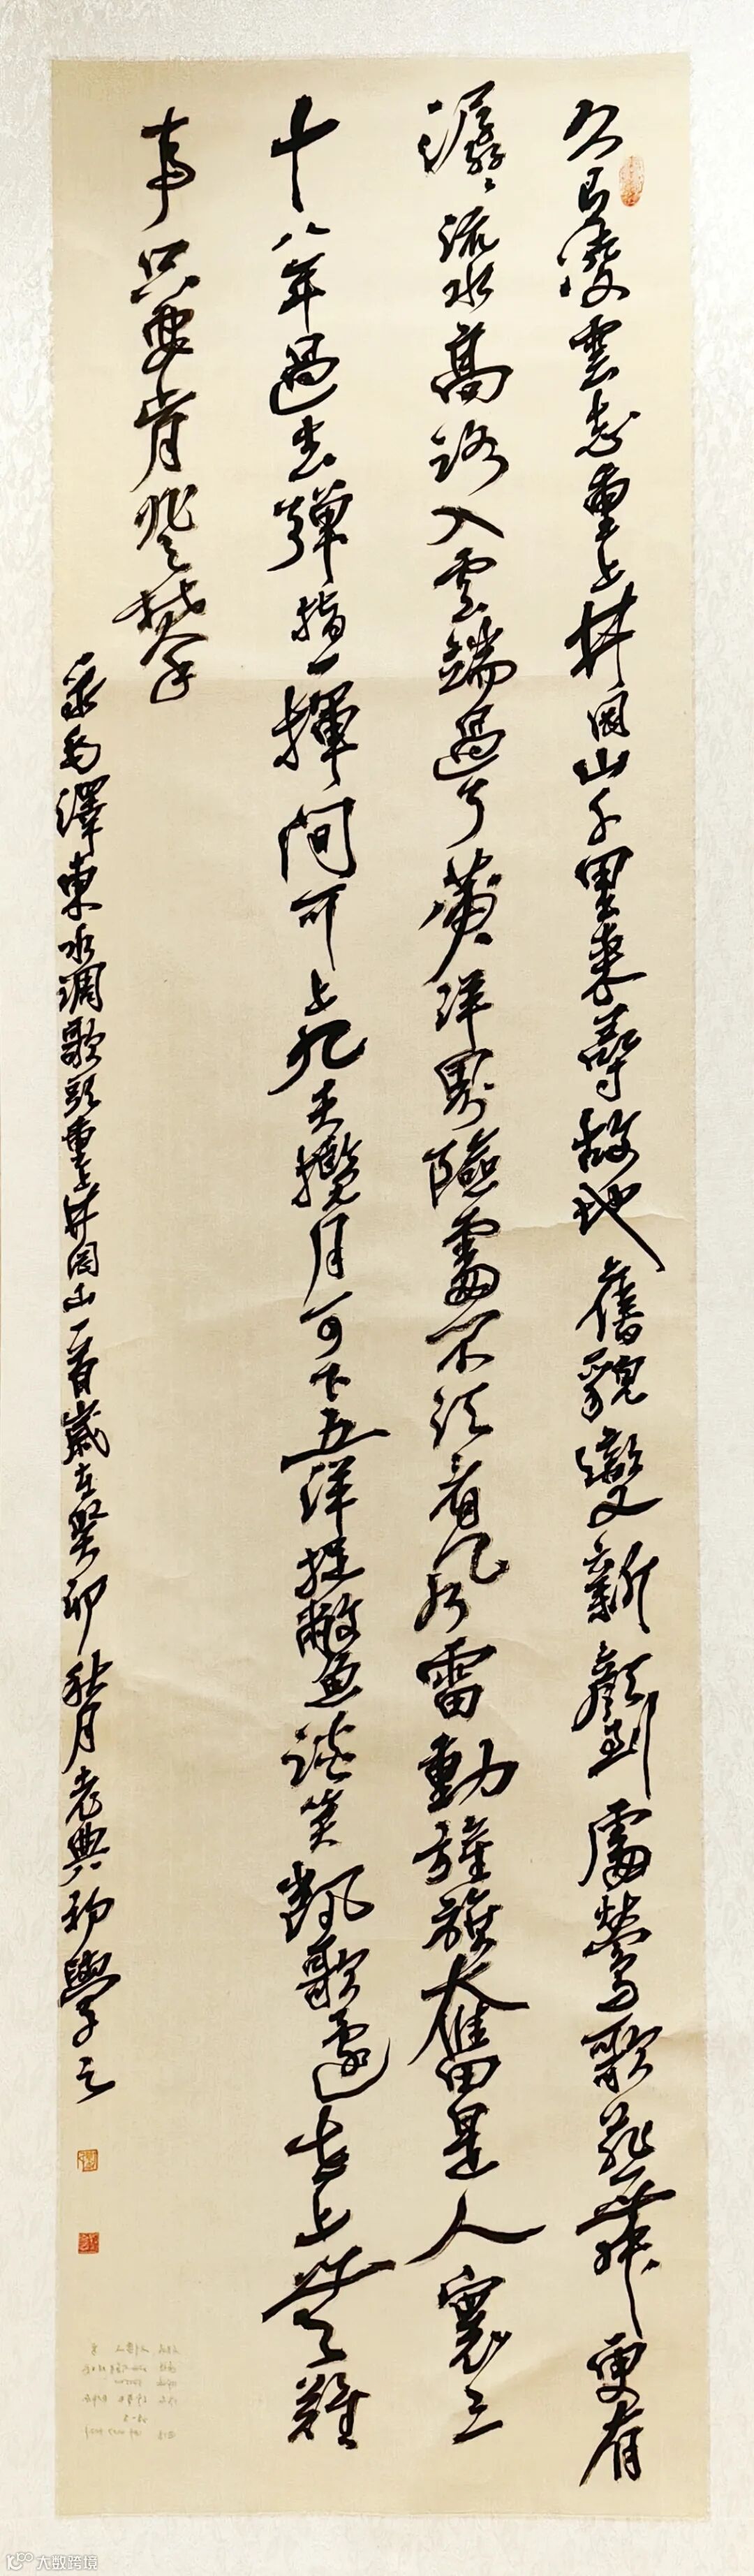 久有凌雲志重上井岡山千里來尋故地舊貌變新顏到處鶯歌燕舞更有
潺〻流水高路入雲端過了黃洋界險處不須看風雷動旌旗奮是人寰三
十八年過去彈指一揮間可上九天攬月可下五洋捉鱉談笑凱歌還世上無難
事只要肯登攀
录毛澤東水調歌頭重上井岡山一首歲在癸卯秋月老典初學之
大数跨境